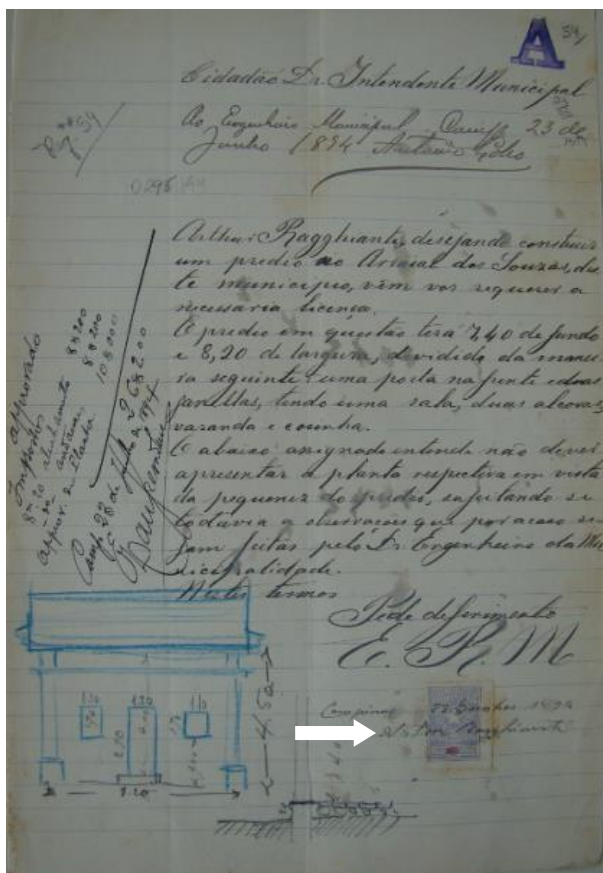 A 54,
Cidadão Dr. Intendente Municipal
Ao Engenheiro Municipal Camp. 23 de
Junho 1894 Antonio Lobo
0295
Arthur Ragghianti, desejando construir
um predio no Arraial dos Souzas, des
te municipio, vêm vos requerer a
necessaria licença.
O predio em questão terá 7,40 de fundo
e 8,20 de largura, devidido da manei
ra seguinte: uma porta na frente e duas
janellas, tendo uma sala, duas alcovas,
varanda e cosinha.
O abaixo assignado entende não dever
apresentar a planta respectiva em vista
da pequenez do predio, sugeitando se
todavia a observações que por acaso se
jam feitas pelo Dr. Engenheiro da Mu
nicipalidade.
Nestes termos
Pede deferimento
E. R. M
Campinas 22 Junho 1894
Arthur Ragghianti
approvado
Impostos
8m20 alinhamento 8$200
andaimes 8$200
approv. da planta 10$000
26$200
Camp. 28 de
1.20
1.10
4.50
8.20